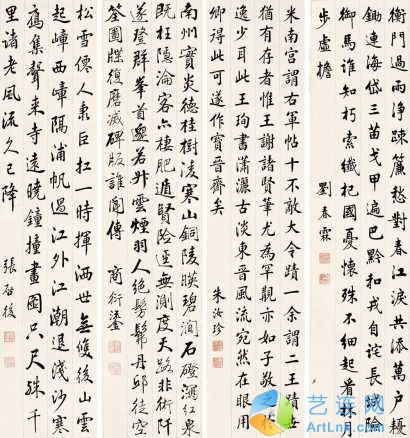 衡門過雨淨疎簾愁對春江淚共添萬戶耰
鋤連海岱三苗戈甲遍巴黔和戎自詫長城險
御馬誰知朽索纖杞國憂懷殊不細起看林月
步虛檐 劉春霖
米南宮謂右軍帖十不敵大令蹟一余謂二王蹟世
猶有存者惟王謝諸賢筆尤為罕覯亦如子敬之於
逸少耳此王珣書瀟灑古淡東晉風流宛然在眼用
卿得此可遂作寶晉齋矣 朱汝珍
南州實炎德桂樹淩寒山銅陵映碧澗石磴瀉紅泉
既枉隱淪客亦棲肥遁賢險徑無測度天路非術阡
遂登群峯首邈若升雲煙羽人絕髣髴丹邱徒空
筌圖牒復磨滅碑版誰聞傳 商衍鎏
松雪僊人隸巨扛一時揮洒世無雙後山雲
起嶂西嶂隔浦帆過江外江潮退淺沙寒
鴈集聲來寺遠曉鐘撞畫圖只尺殊千
里諸老風流久已降 張啓後
艺连网